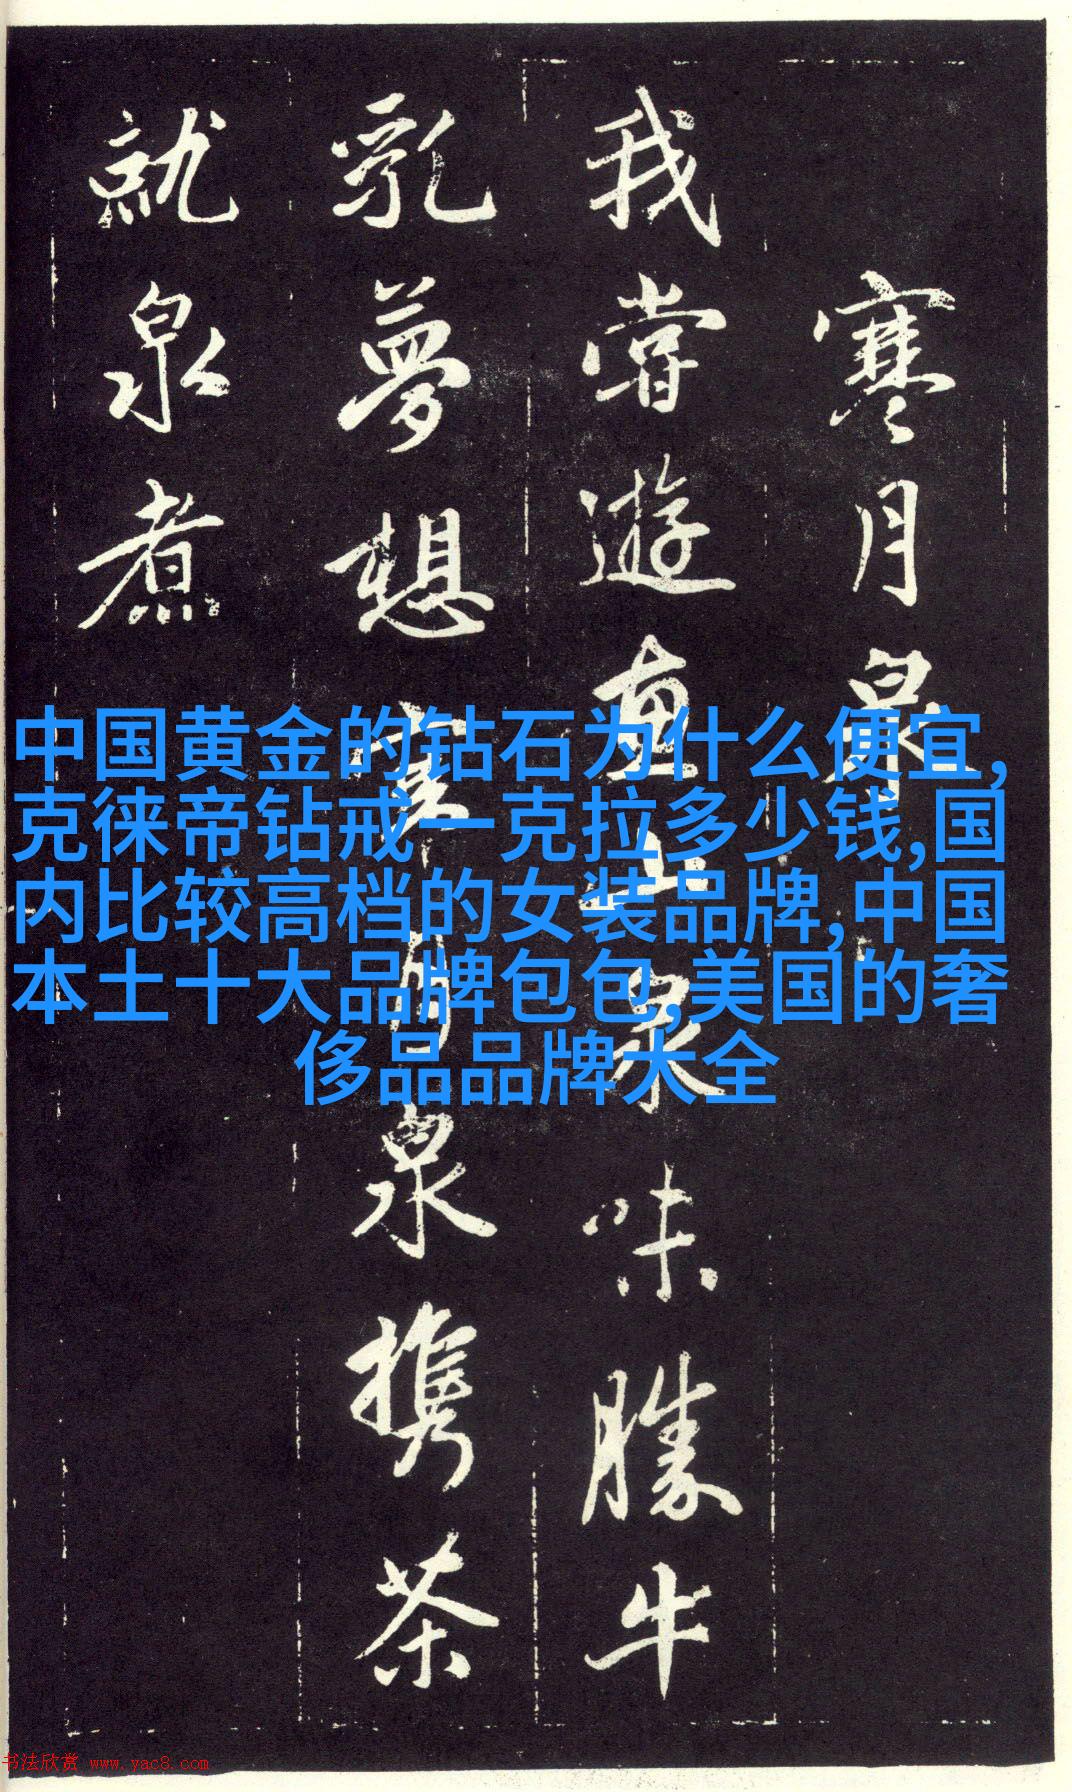 寒月泉
我嘗遊惠山泉味勝牛
乳夢想寒月泉攜茶
就泉煮
中国黄金的钻石为什么便宜,
克徕帝钻戒一克拉多少钱,国
内比较高档的女装品牌,中国
本土十大品牌包包,美国的奢
侈品品牌大全
书法欣赏 www.yac8.com